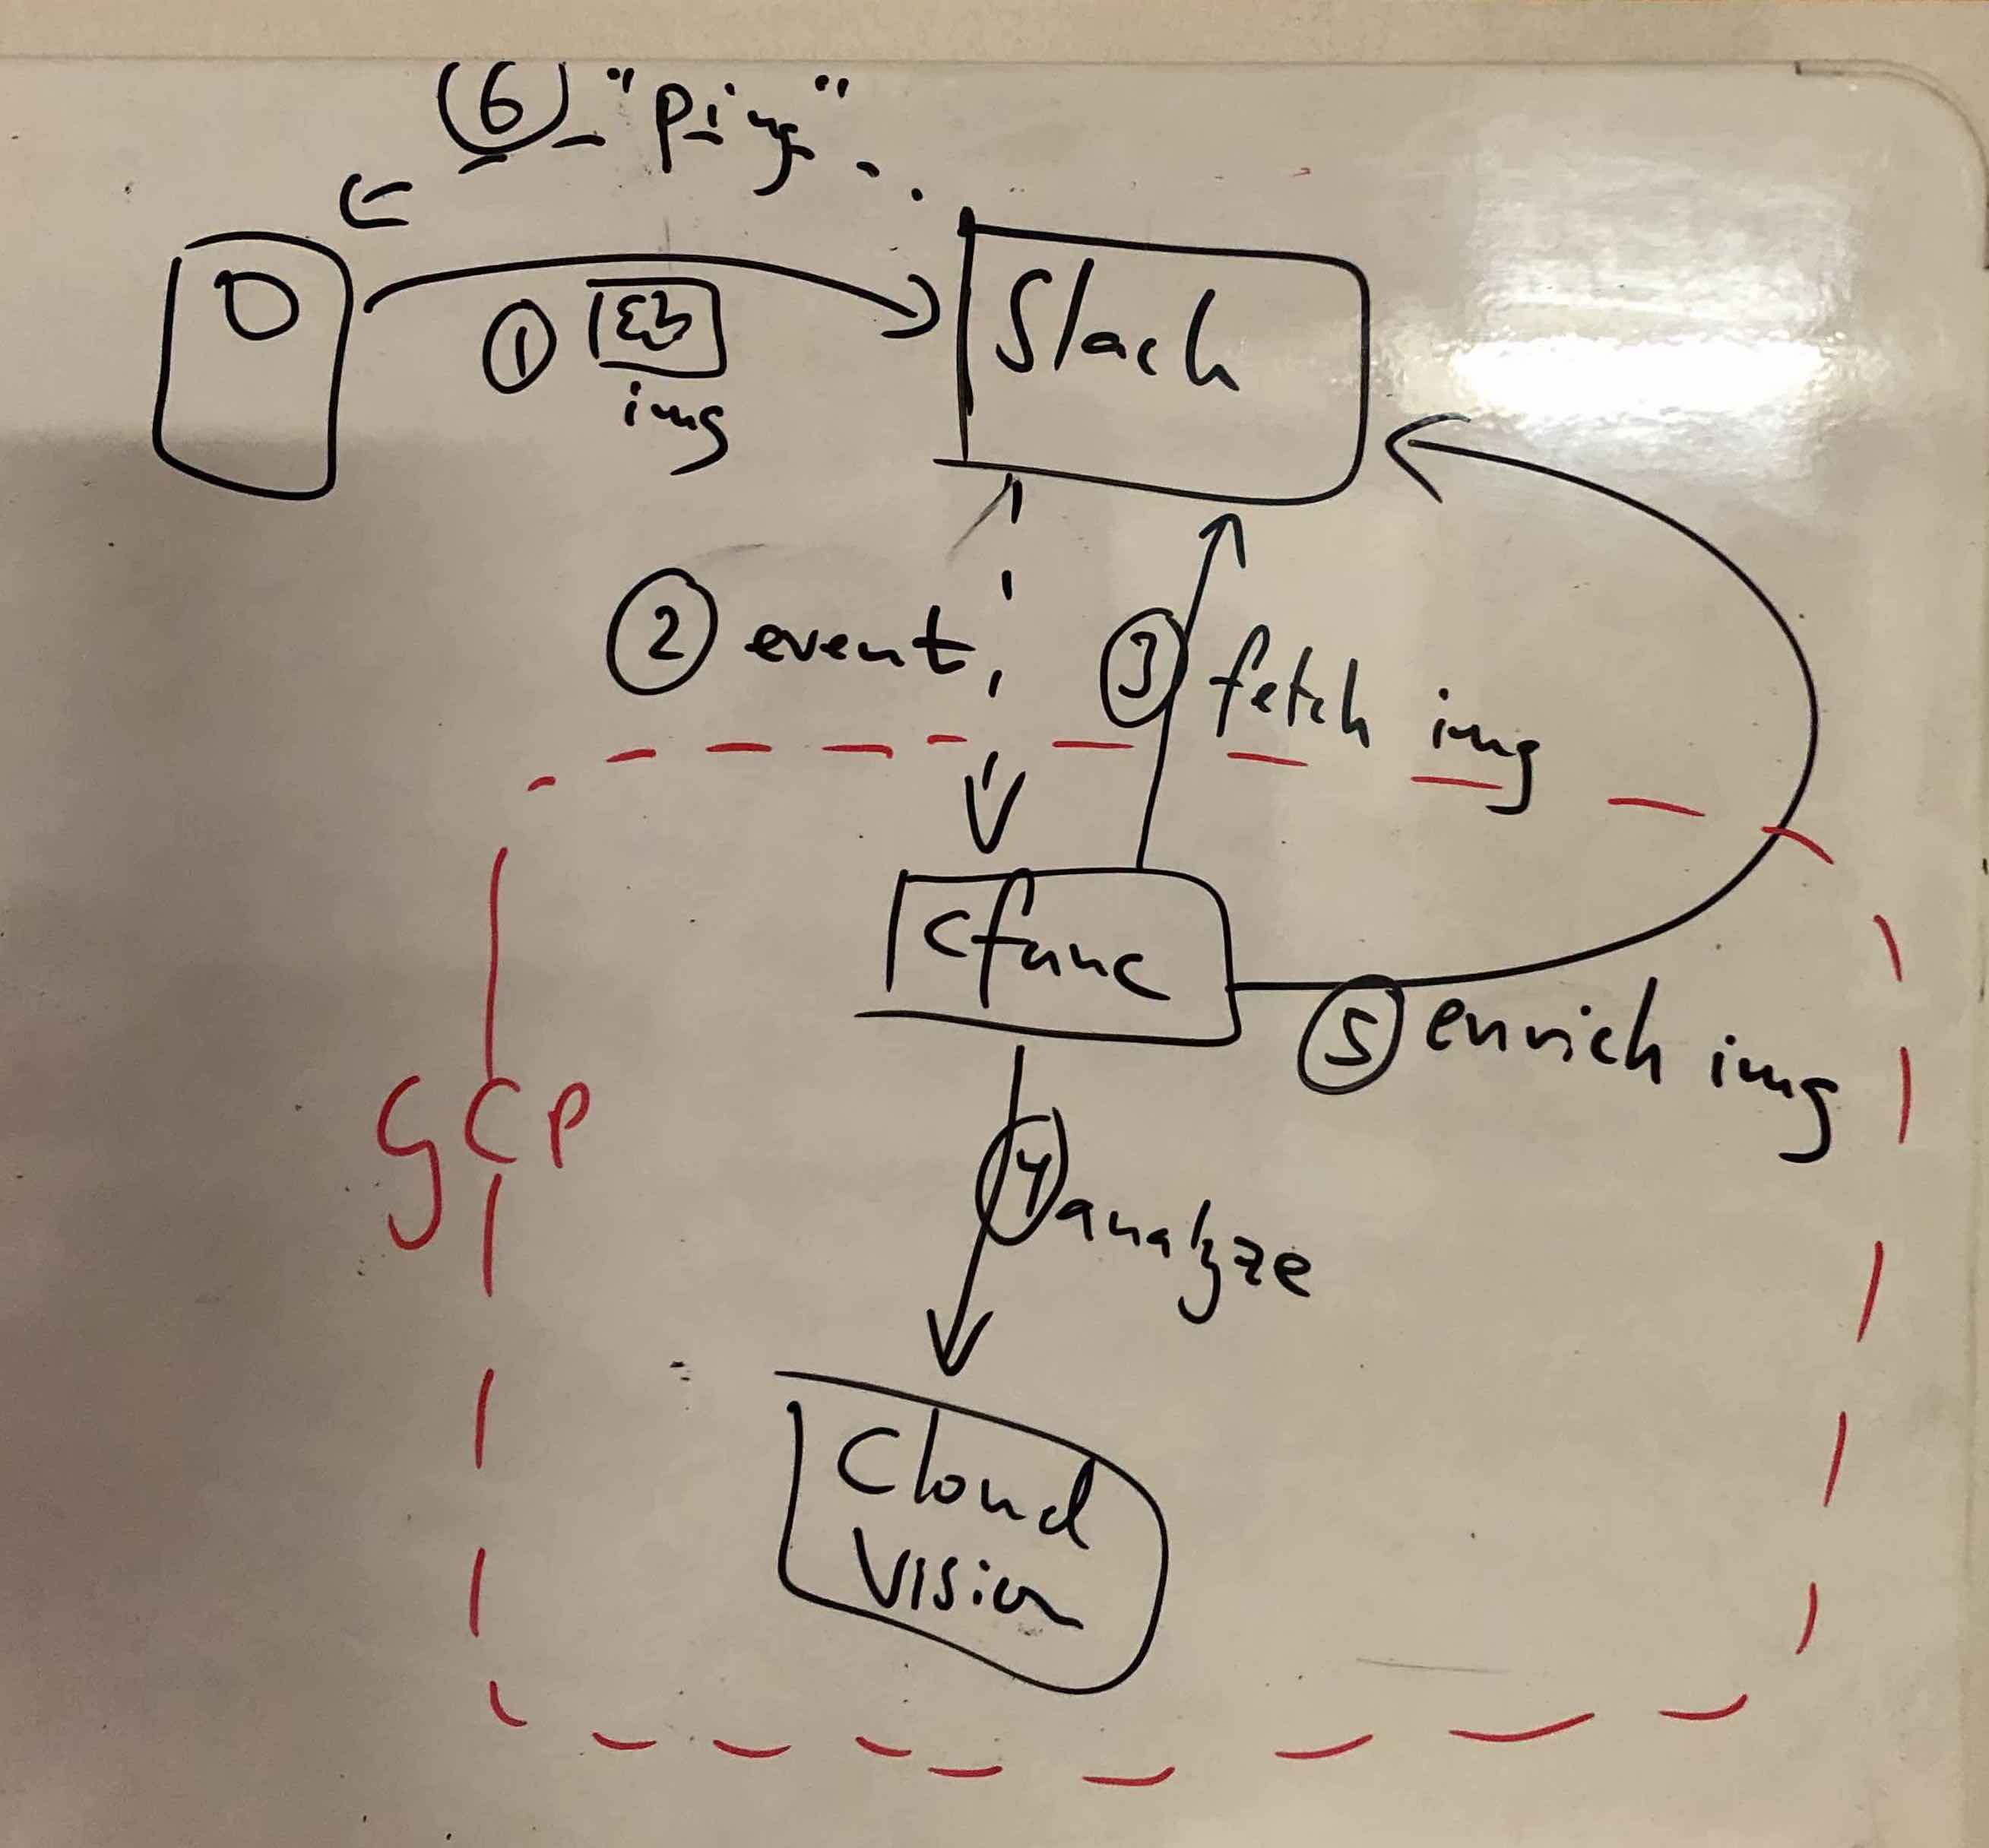 6 "Ping"
1
img
Slack
2 event
3 fetch img
cfunc
5 enrich img
GCP
4 analyze
Cloud
Vision